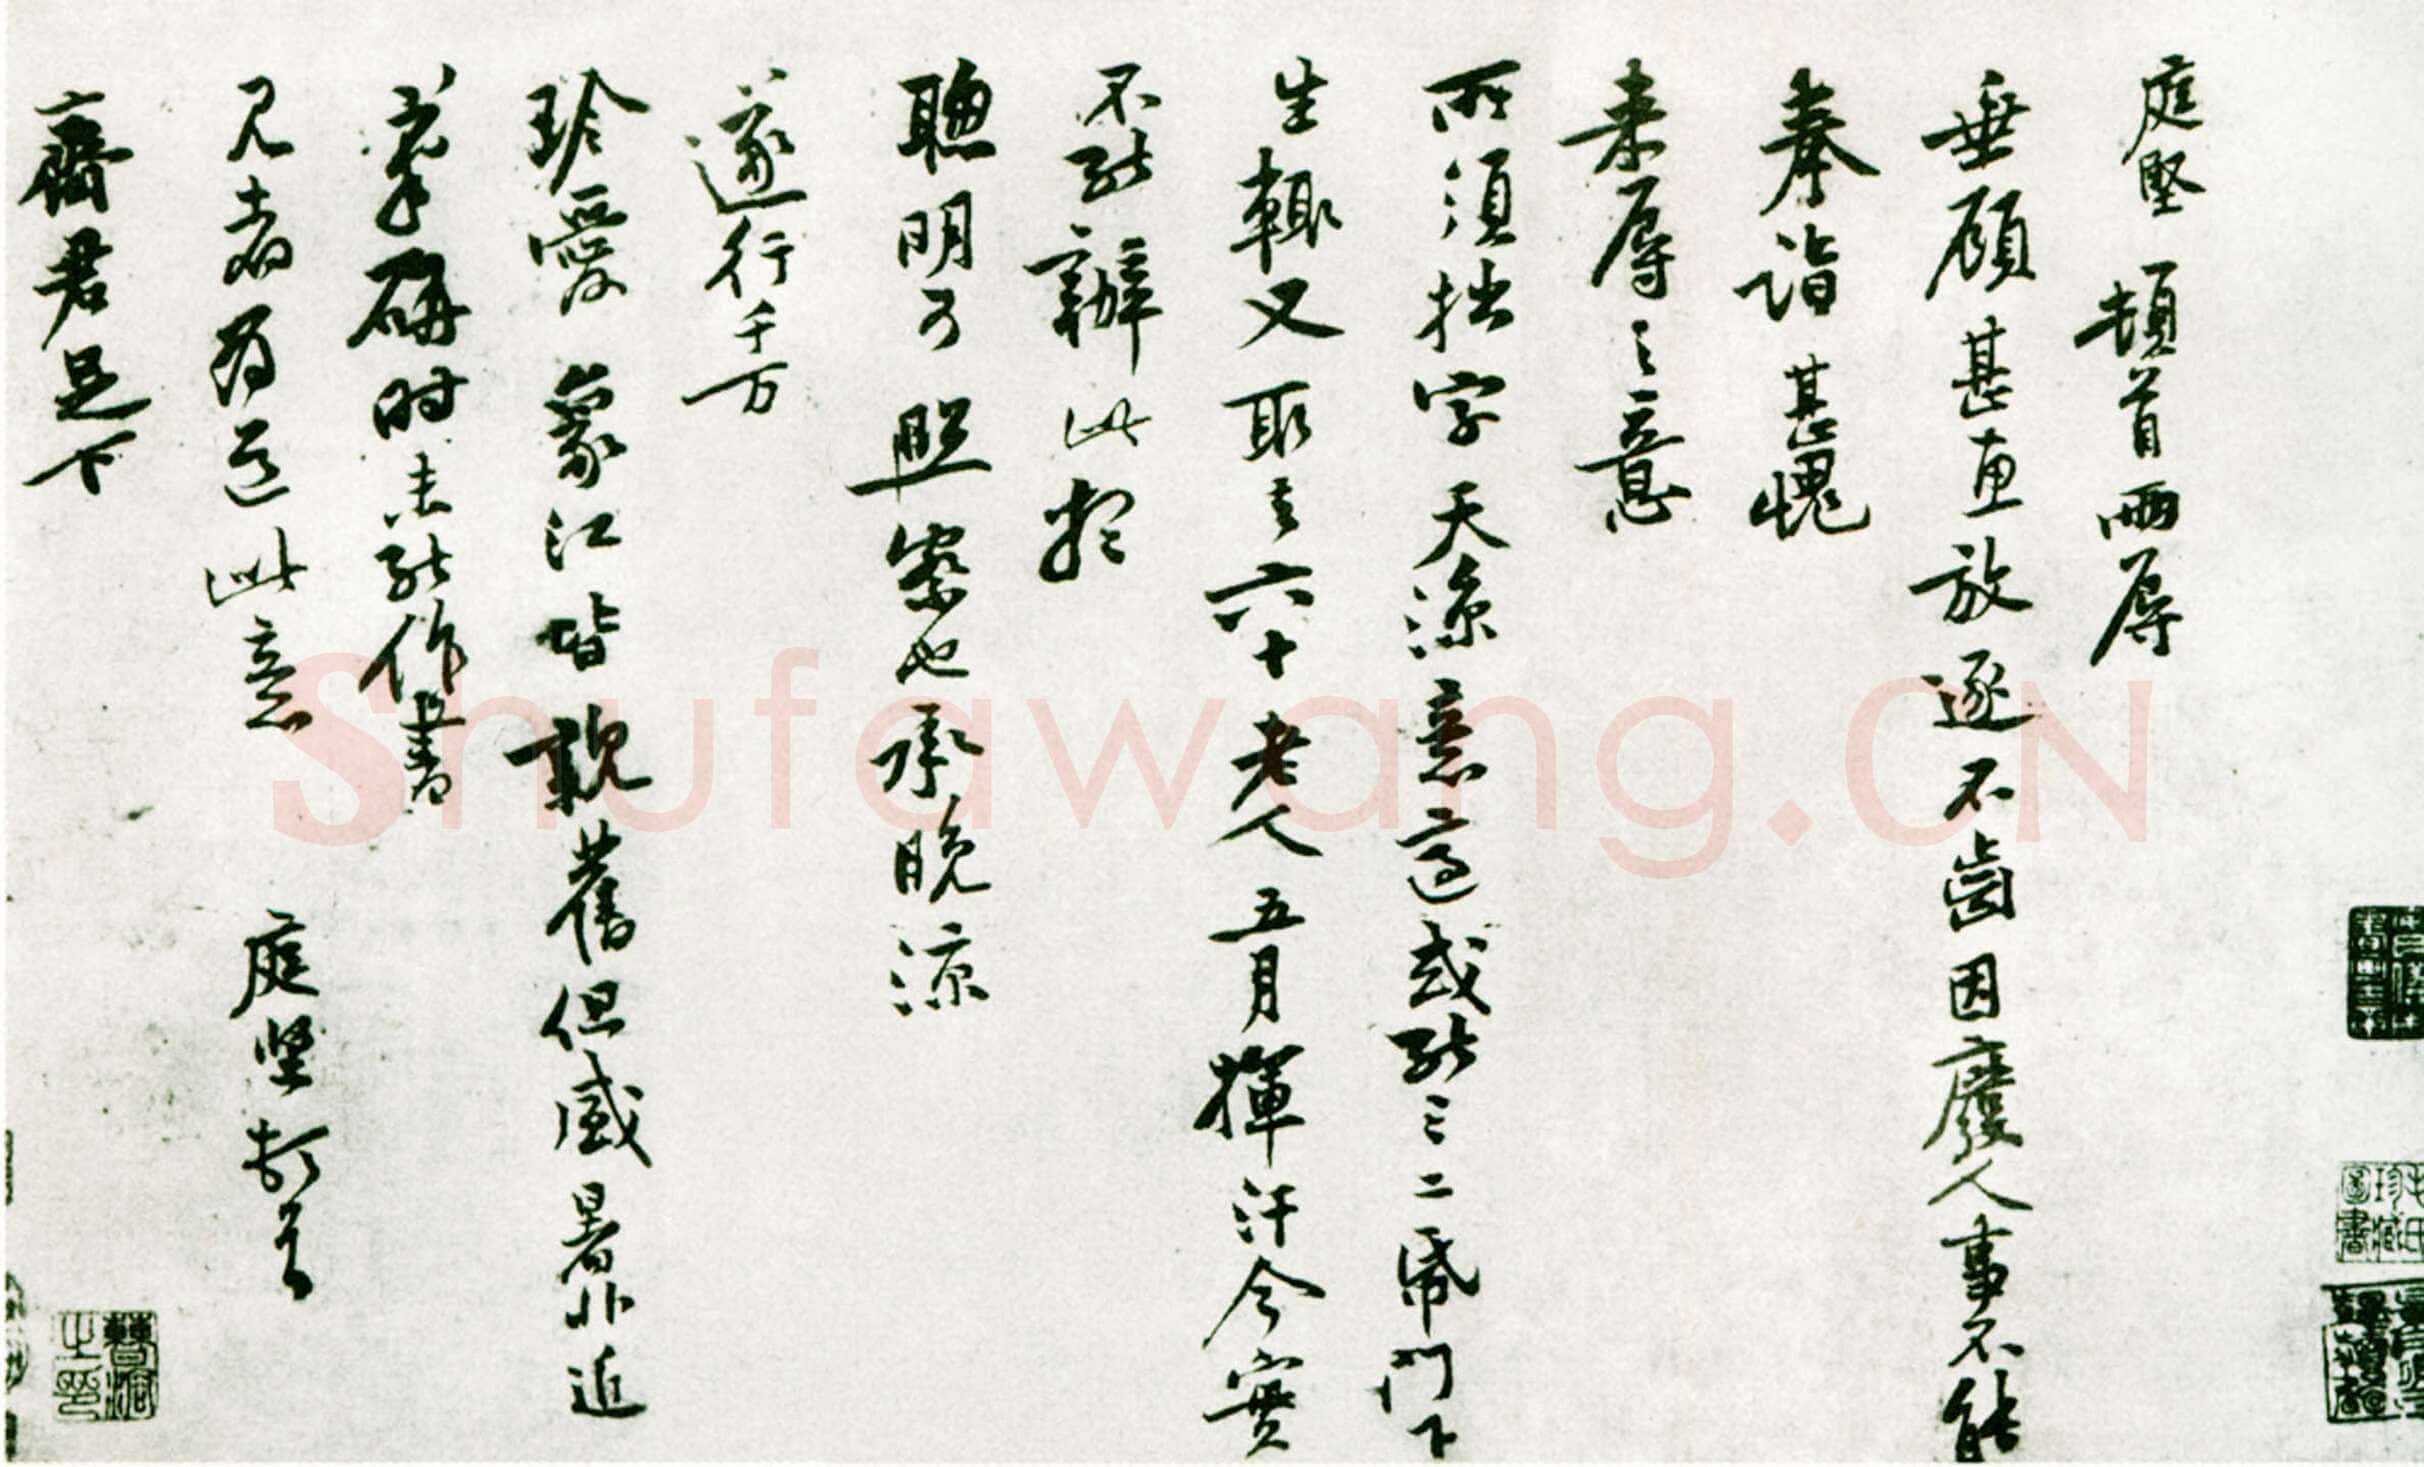 庭堅頓首兩辱
垂顧甚惠放逐不齒因廢人事不能
奉詣甚愧
来辱之意
所須拙字天涼意適或能三二紙門下
生輒又取去六十老人五月揮汗今實
不能辦此想
聰明可照察也承晚涼
遂行千万
珍愛象江皆親舊但盛暑非近
筆研時未能作書
見者為道此意 庭堅頓首
齋君足下
Shufawang.CN